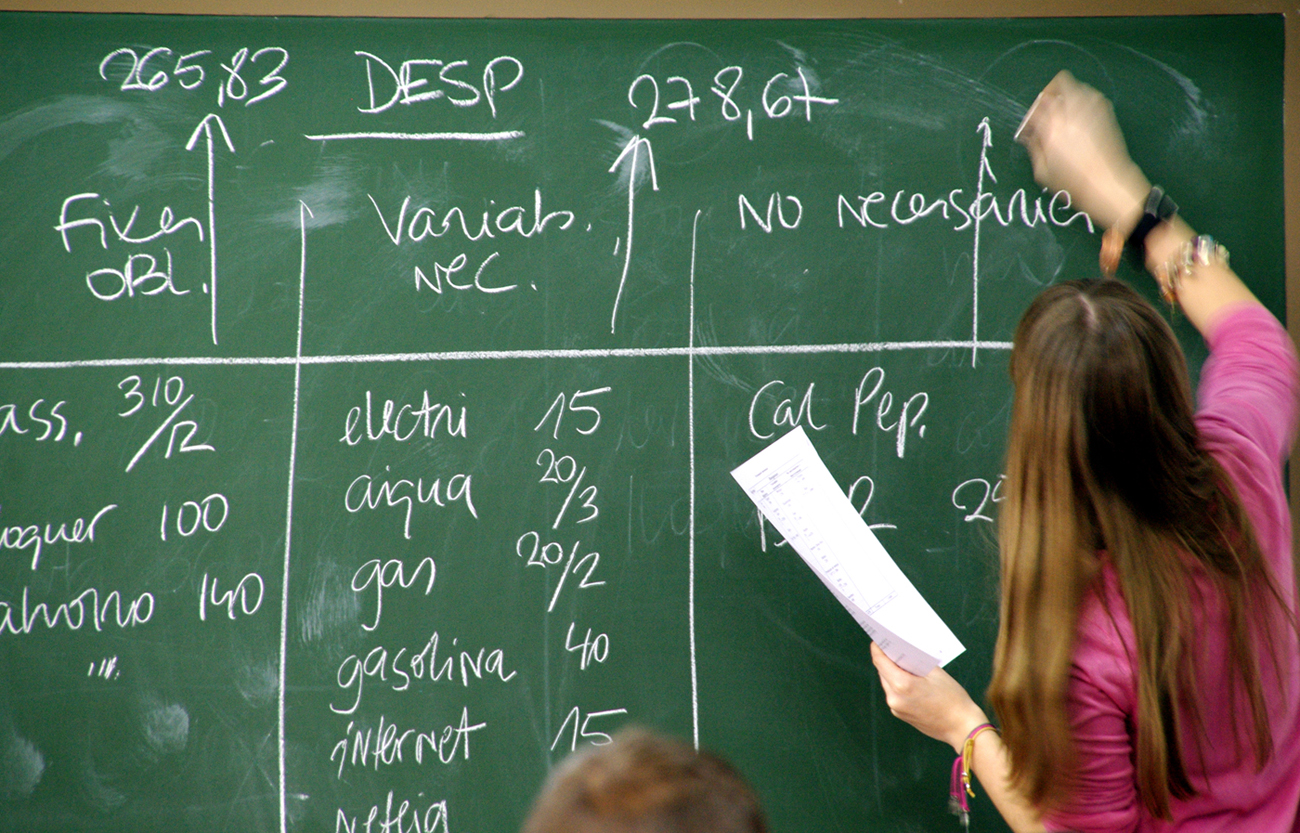 265,83 DESP 278,67
Fixes Variab. No necessàries
OBL. NEC.
ass. 310/12 electri 15 Cal Pep.
loguer 100 aigua 20/3
ahorro 140 gas 20/2
"".
gasolina 40
internet 15
neteja